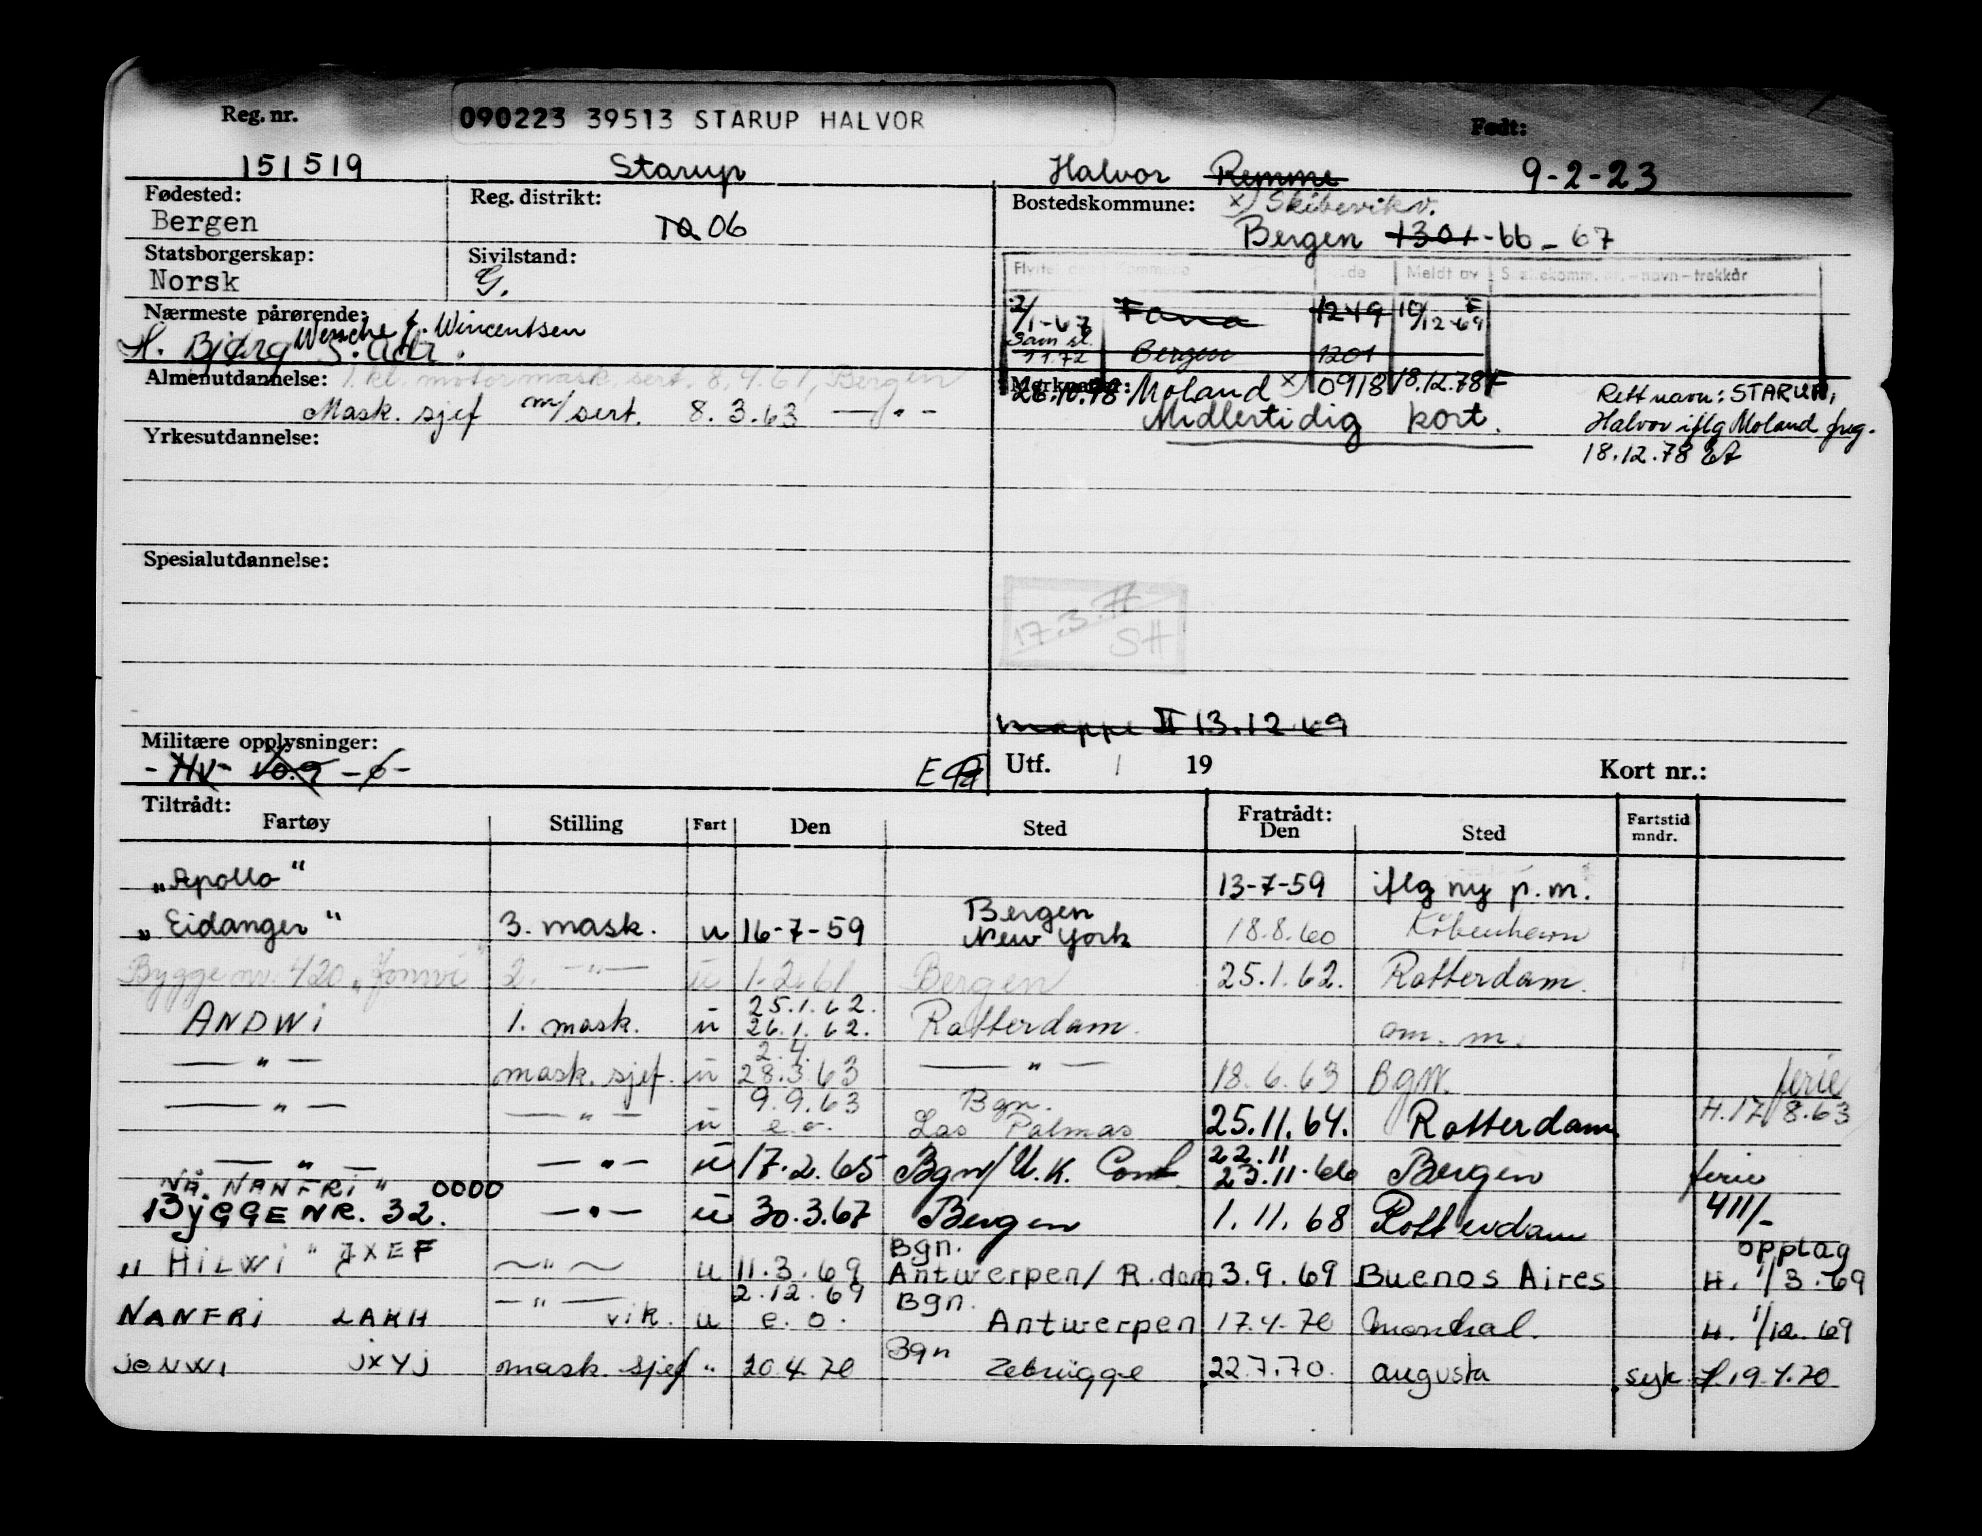 Reg. nr. 090223 39513 STARUP HALVOR Født:
151519 Starup Halvor Remme 9-2-23
Fødested: Reg. distrikt: Bostedskommune: x) Skibevikv.
Bergen TQ 06 Bergen 1301-66-67
Statsborgerskap: Sivilstand:
Norsk G.
Flyttet Kommune Meldt av
2/1-67 Fana 1249 10/12-69
Sam sl. 1.1.72 Bergen 1201
Nærmeste pårørende: Wenche f. Wincentsen
H. Bjørg S. adr.
Almenutdannelse: 1. kl. motormask. sert. 8.4.61, Bergen
Mask. sjef m/sert. 8.3.63 — " —
Merknader: 26.10.78 Moland x) 0918 18.12.78
Midlertidig kort.
Rett navn: STARUP,
Halvor iflg Moland freg.
18.12.78
Yrkesutdannelse:
Spesialutdannelse:
17.3.77
SH
mappe II 13.12.69
Militære opplysninger:
- HV - 10.9 - 6 -
Utf. / 19 Kort nr.:
Tiltrådt: Fratrådt:
Fartøy Stilling Fart Den Sted Den Sted Fartstid mndr.
„Apollo" 13-7-59 iflg ny p.m.
„Eidanger" 3. mask. u 16-7-59 Bergen New York 18.8.60 København
Bygge nr. 420 „Jonwi" 2. — " — u 1.2.61 Bergen 25.1.62. Rotterdam.
ANDWi 1. mask. u 25.1.62. 26.1.62. Rotterdam. om. m.
— " — mask. sjef. u 2.4. 28.3.63 — " — 18.6.63 Bgn. ferie
— " — — " — u 9.9.63 e.o. Bgn. Las Palmas 25.11.64. Rotterdam H. 17/8.63
— " — — " — u 17.2.65 Bgn/U.K. Cont. 22.11 23.11.66 Bergen ferie
NÅ NANFRI" OOOO
BYGGE NR. 32. — " — u 30.3.67 Bergen 1. 11. 68 Rotterdam 411/-
„ HiLWi " JXEF — " — u 11.3.69 Bgn. Antwerpen/ R.dam 3.9.69 Buenos Aires opptag H. 1/3.69
NANFRi LAKH — " — vik. u 2.12.69 e.o. Bgn. Antwerpen 17.4.70 Montreal. H. 1/12.69
JONWI JXYJ mask. sjef " 20.4.70 Bgn Zebrügge 22.7.70. augusta syk H. 19.7.70